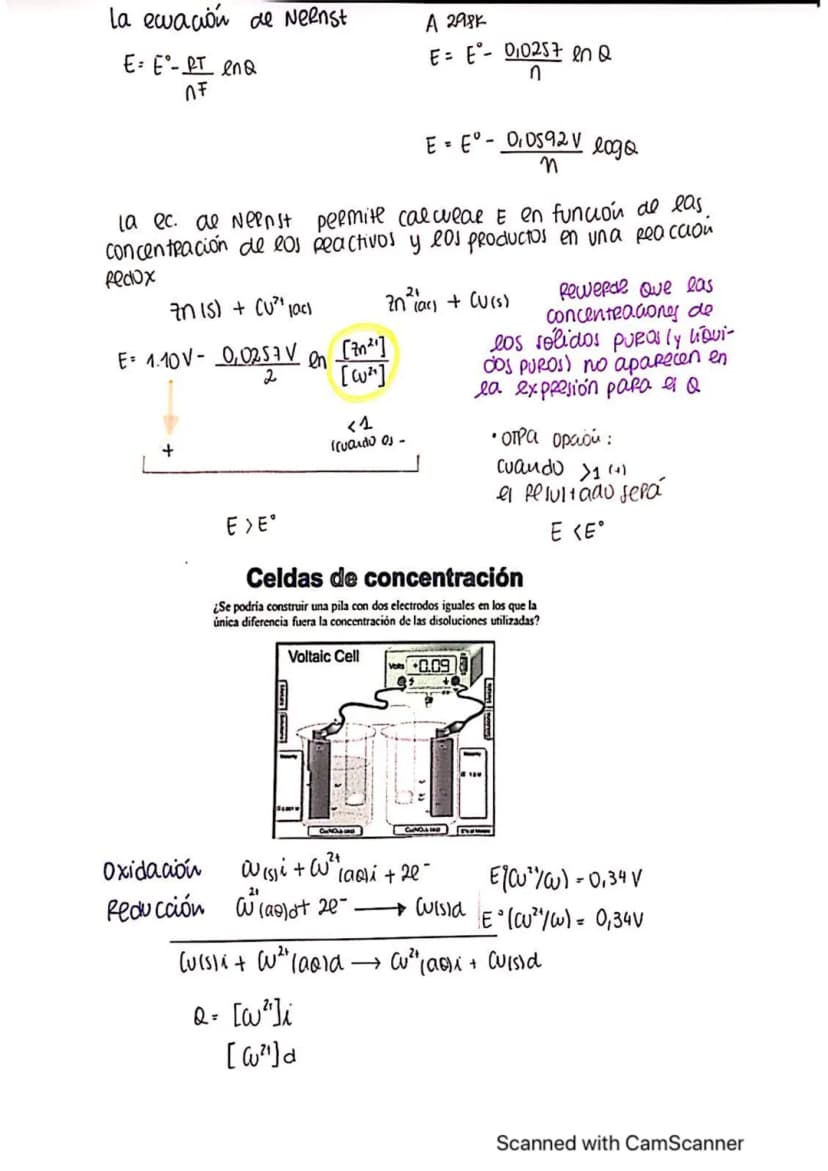 la ecuación de Neenst
A 298K
E = E° - RT/nF ln Q
E = E° - 0,0257/n ln Q
E = E° - 0,0592 V/n log Q
la ec. de Neenst permite calcular E en función de las
concentración de los reactivos y los productos en una reacción
redox
Zn (s) + Cu²⁺ (ac) Zn²⁺(ac) + Cu(s)
E = 1.10 V - 0,0257 V/2 ln [Zn²⁺]/[Cu²⁺]
Recuerde que las
concentraciones de
los sólidos puros (y líqui-
dos puros) no aparecen en
la expresión para el Q
+
<1
(cuando es -
• otra opción:
cuando >1 (+)
el resultado será
E > E°
E < E°
Celdas de concentración
¿Se podría construir una pila con dos electrodos iguales en los que la
única diferencia fuera la concentración de las disoluciones utilizadas?
Voltaic Cell
Volts +0.09
Oxidación Cu(s)i + Cu²⁺(aq)i + 2e⁻ E°(Cu²⁺/Cu) = 0,34 V
Reducción Cu²⁺(aq)d + 2e⁻ → Cu(s)d E°(Cu²⁺/Cu) = 0,34V
Cu(s)i + Cu²⁺(aq)d → Cu²⁺(aq)i + Cu(s)d
Q = [Cu²⁺]i
[Cu²⁺]d
Scanned with CamScanner